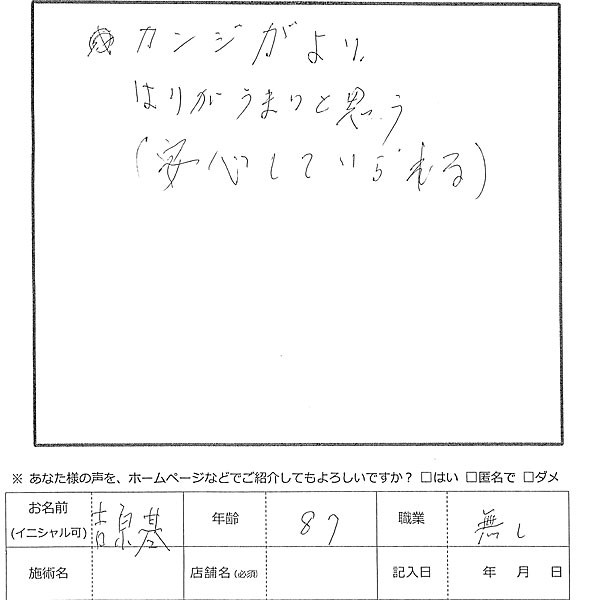 カンジがより、
はりがうまりと思う
(安心していられる)
※ あなた様の声を、ホームページなどでご紹介してもよろしいですか? □はい □匿名で □ダメ
お名前 吉原基 年齢 87 職業 無し
(イニシャル可)
施術名 店舗名(必須) 記入日 年 月 日